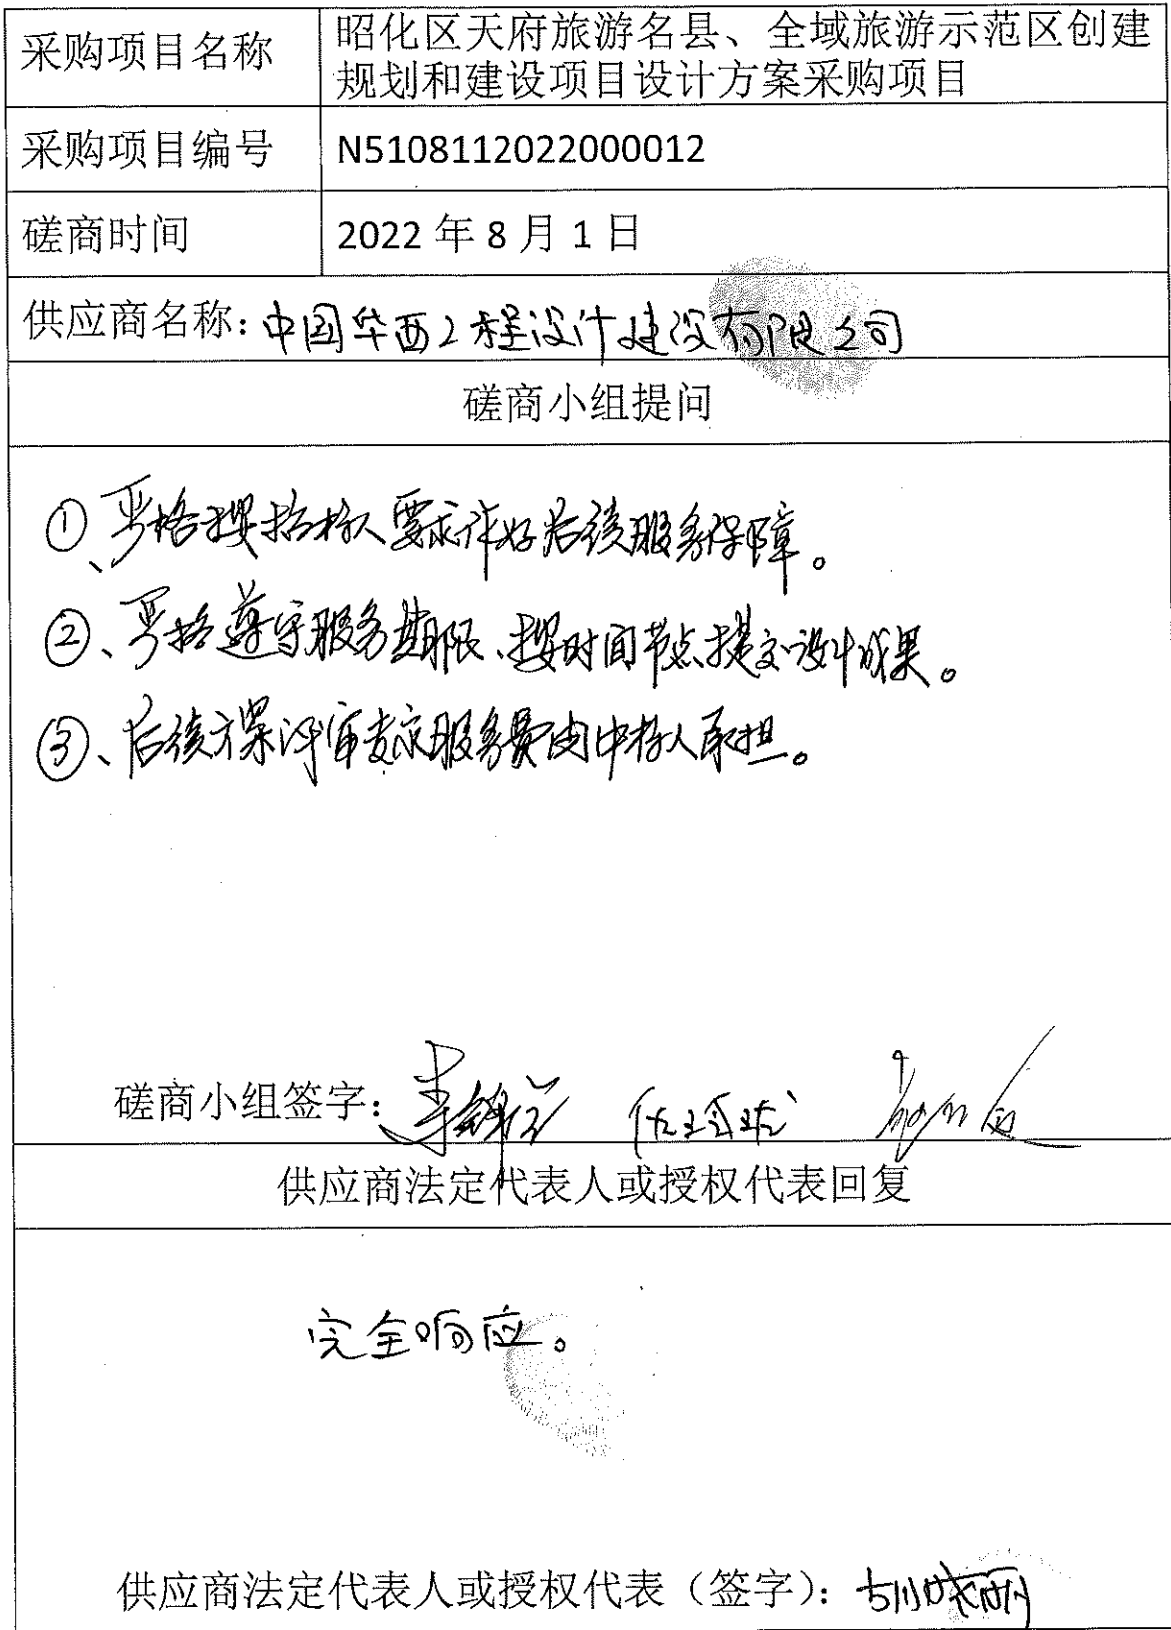 采购项目名称
昭化区天府旅游名县、全域旅游示范区创建
规划和建设项目设计方案采购项目
采购项目编号
N5108112022000012
磋商时间
2022 年 8 月 1 日
供应商名称：中国华西工程设计建设有限公司
磋商小组提问
①、严格按招标人要求作好后续服务保障。
②、严格遵守服务期限、按时间节点提交设计成果。
③、后续方案评审专家服务费由中标人承担。
磋商小组签字：
供应商法定代表人或授权代表回复
完全响应。
供应商法定代表人或授权代表（签字）：